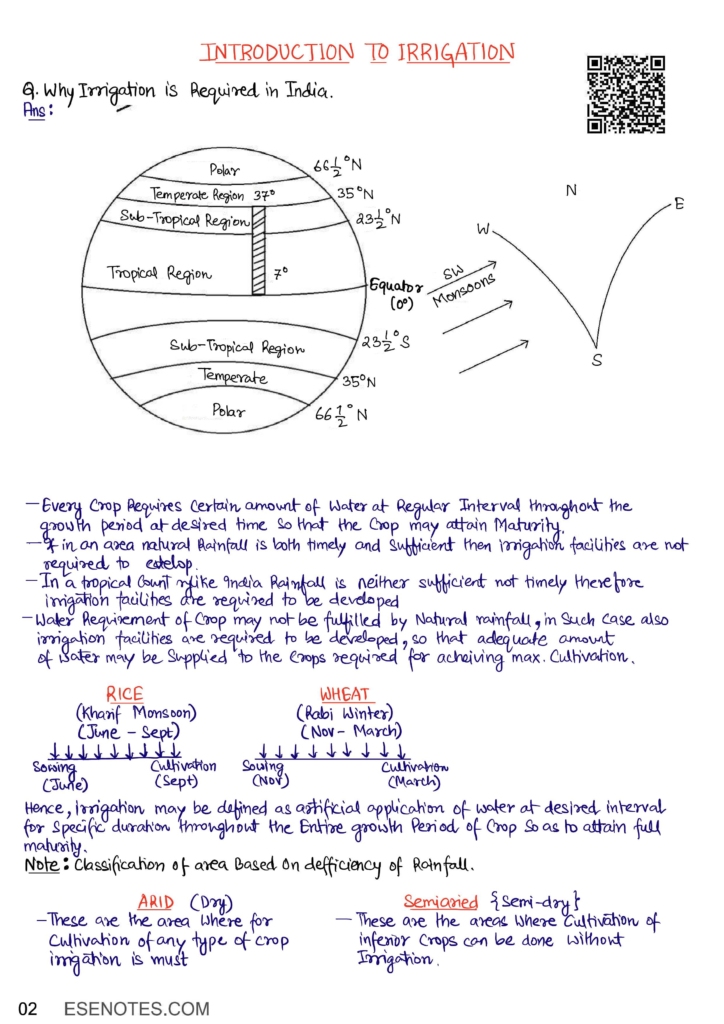 INTRODUCTION TO IRRIGATION
Q. Why Irrigation is Required in India.
Ans:
Polar
66½°N
Temperate Region 37°
35°N
Sub-Tropical Region
23½°N
Tropical Region
7°
Equator
(0°)
Sub-Tropical Region
23½°S
Temperate
35°N
Polar
66½°N
N
W
E
SW
Monsoons
S
- Every Crop Requires Certain amount of Water at Regular Interval throughout the
growth period at desired time So that the Crop may attain Maturity.
- If in an area natural Rainfall is both timely and Sufficient then irrigation facilities are not
required to estelop.
- In a tropical Country like India Rainfall is neither sufficient not timely therefore
irrigation facilities are required to be developed
- Water Requirement of Crop may not be fulfilled by Natural rainfall, in Such Case also
irrigation facilities are required to be developed, so that adequate amount
of water may be Supplied to the Crops required for acheiving max. Cultivation.
RICE
(Kharif Monsoon)
(June - Sept)
Sowing
(June)
Cultivation
(Sept)
WHEAT
(Rabi Winter)
(Nov - March)
Sowing
(Nov)
Cultivation
(March)
Hence, Irrigation may be defined as artificial application of water at desired interval
for Specific duration throughout the Entire growth Period of Crop So as to attain full
maturity.
Note: Classification of area Based On defficiency of Rainfall.
ARID (Dry)
- These are the area Where for
Cultivation of any type of crop
irrigation is must
Semiaried {Semi-dry}
- These are the areas Where Cultivation of
inferior Crops can be done Without
Irrigation.
02 ESENOTES.COM